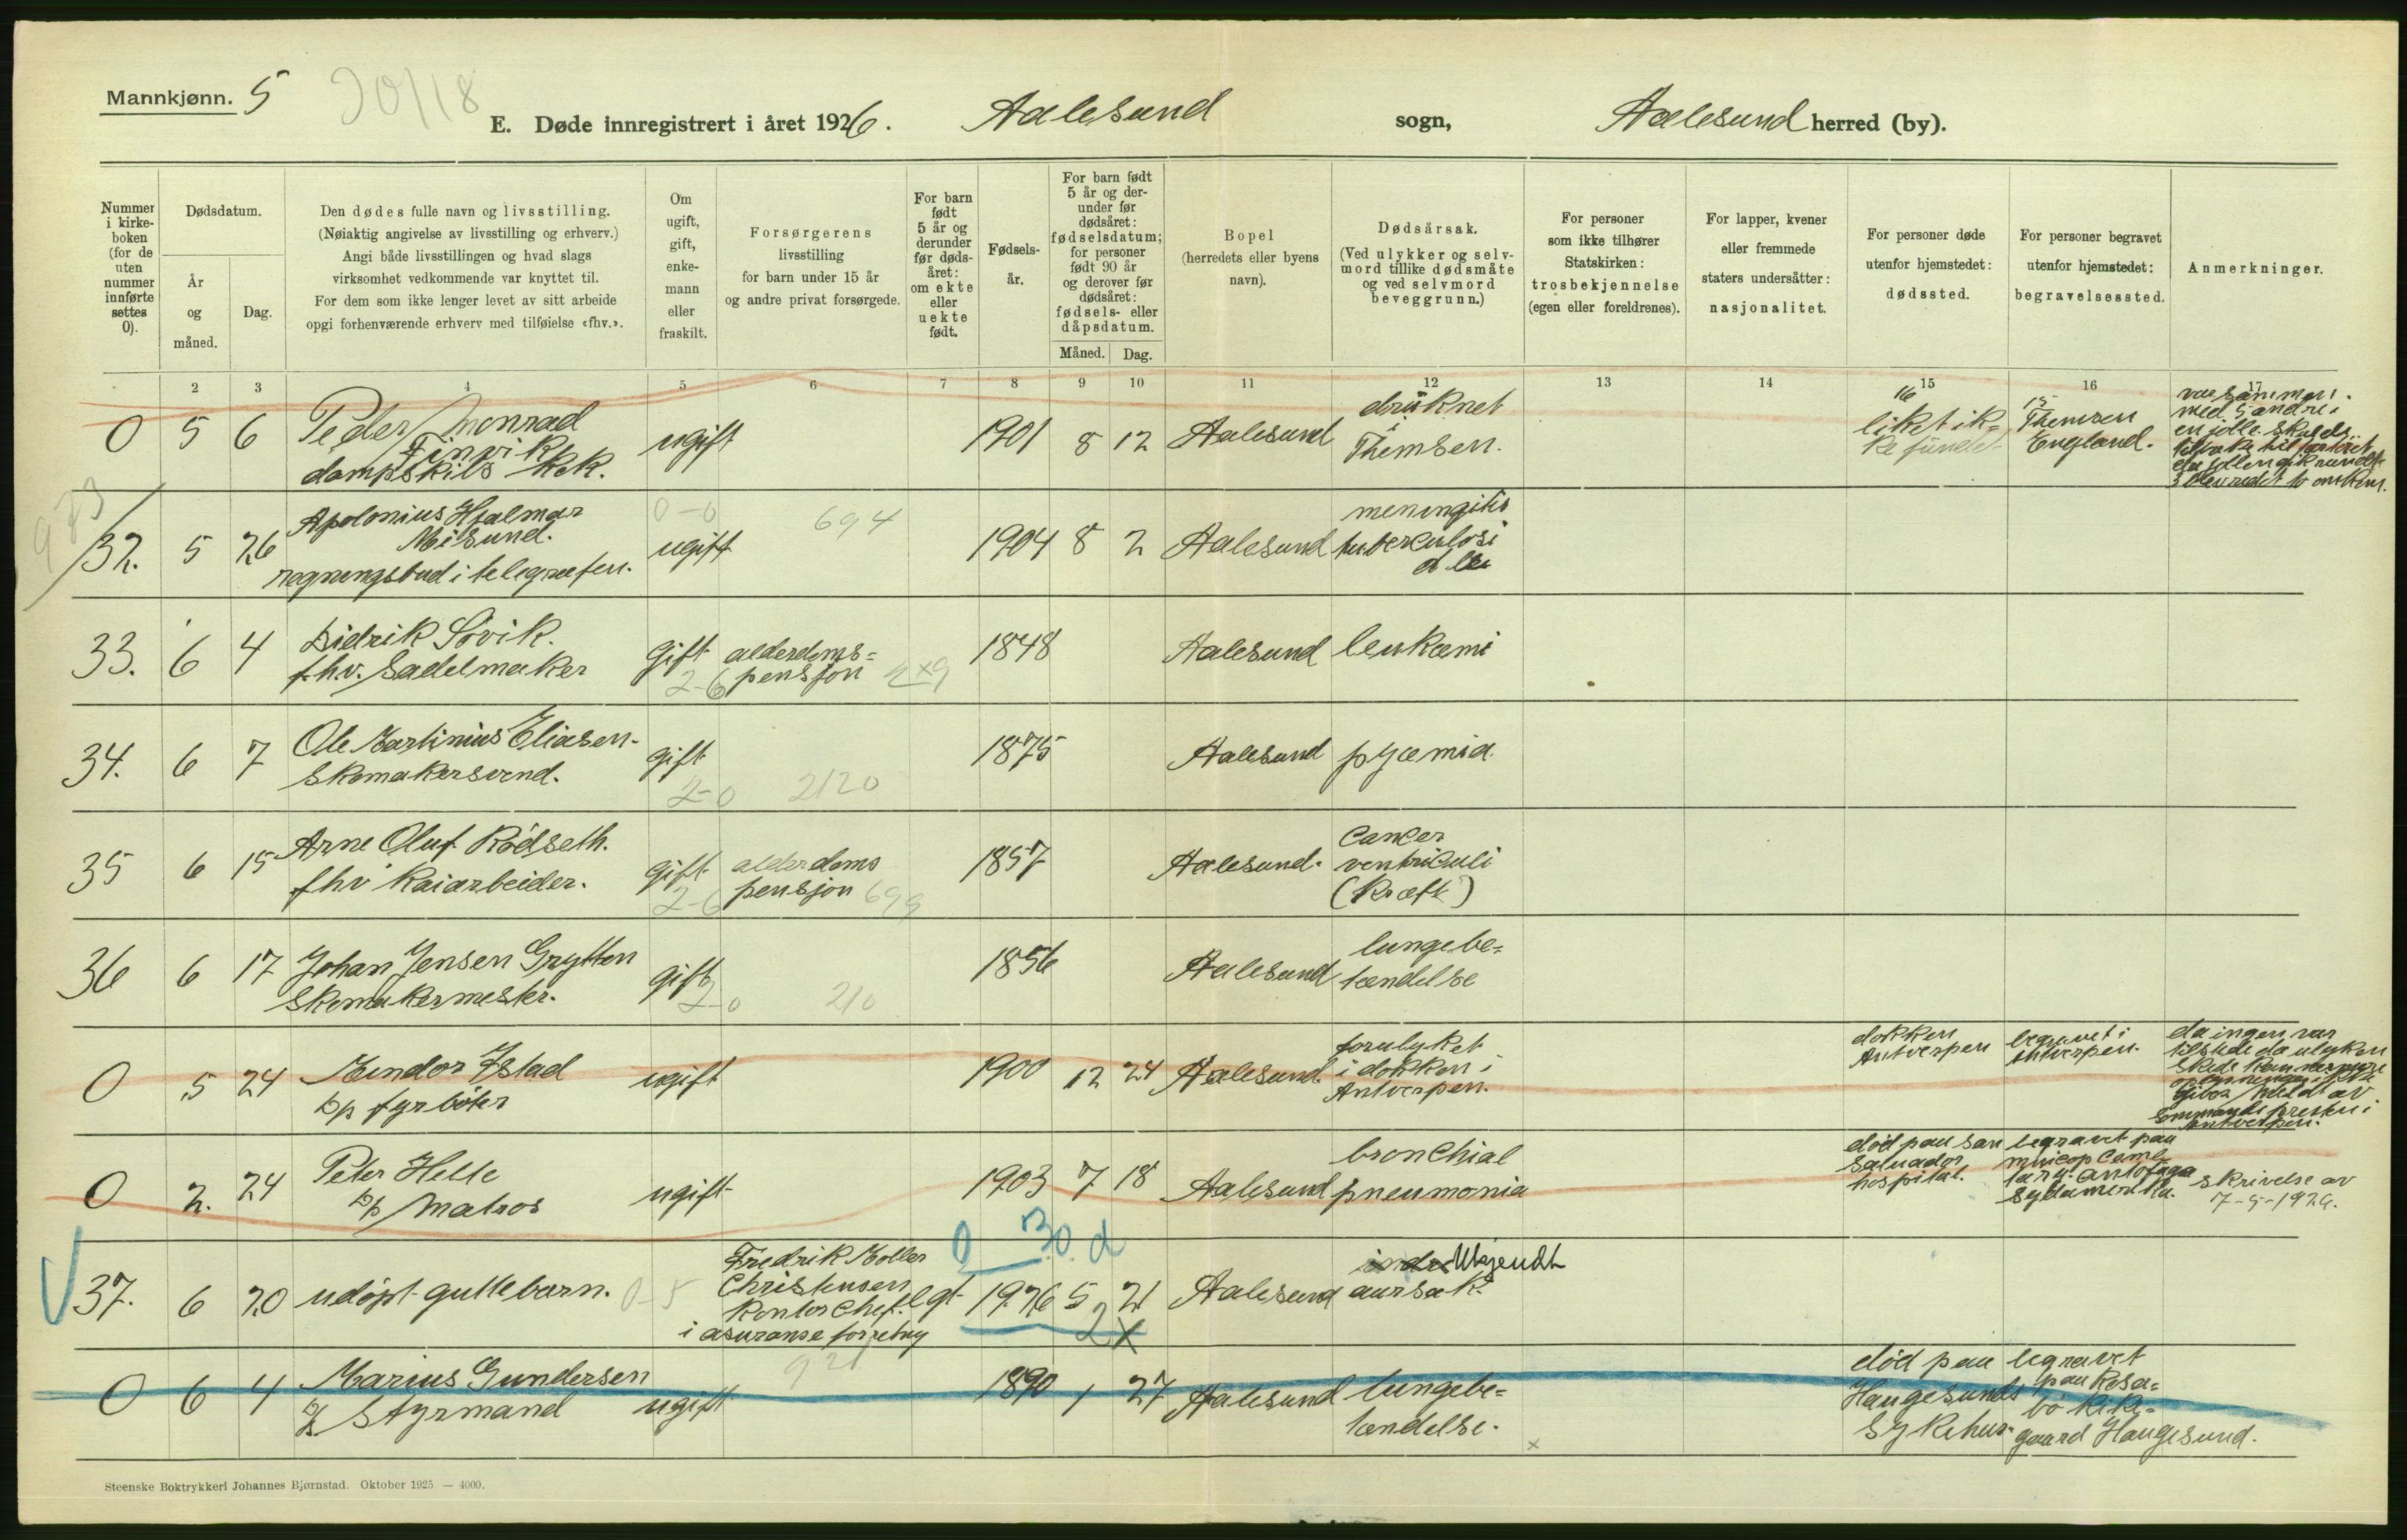 Mannkjønn. 5
E. Døde innregistrert i året 1926. Aalesund sogn, Aalesund herred (by).
Nummer i kirke-boken (for de uten nummer innførte settes 0).
Dødsdatum.
År og måned.
Dag.
Den dødes fulle navn og livsstilling.
(Nøiaktig angivelse av livsstilling og erhverv.)
Angi både livsstillingen og hvad slags
virksomhet vedkommende var knyttet til.
For dem som ikke lenger levet av sitt arbeide
opgi forhenværende erhverv med tilføielse «fhv.».
Om ugift, gift, enke-mann eller fraskilt.
Forsørgerens
livsstilling
for barn under 15 år
og andre privat forsørgede.
For barn født 5 år og derunder før døds-året: om ekte eller uekte født.
Fødsels-år.
For barn født 5 år og der-under før dødsåret: fødselsdatum; for personer født 90 år og derover før dødsåret: fødsels- eller dåpsdatum.
Måned. Dag.
Bopel
(herredets eller byens
navn).
Dødsårsak.
(Ved ulykker og selv-
mord tillike dødsmåte
og ved selvmord
beveggrunn.)
For personer
som ikke tilhører
Statskirken:
trosbekjennelse
(egen eller foreldrenes).
For lapper, kvener
eller fremmede
staters undersåtter:
nasjonalitet.
For personer døde
utenfor hjemstedet:
dødssted.
For personer begravet
utenfor hjemstedet:
begravelsessted.
Anmerkninger.
2 3 4 5 6 7 8 9 10 11 12 13 14 15 16 17
0 5 6 Peder Monrad ugift 1901 8 12 Aalesund druknet
Finvik
dampskibs kok.
i Themsen.
16 liket ik=
ke fundet
15 Themsen
England.
var sammen
med 5 andre i
en jolle. skulde
tilbake til
32. 5 26 Apolonius Hjalmar
Misund.
regningsbud i telegrafen.
0-0 ugift 694 1904 8 2 Aalesund meningitis
tuberculosi
33. 6 4 Didrik Sövik.
fhv. Sadelmaker
gift 2-6 alderdoms=
pensjon 1848 Aalesund leukæmi
34. 6 7 Ole Martinius Eliasen
Skomakersvend.
gift 2-0 2120 1875 Aalesund pyæmia.
35 6 15 Arne Oluf Rödseth.
fhv Kaiarbeider.
gift 2-6 alderdoms
pensjon 699 1857 Aalesund. Cancer
ventriculi
(Kræft)
36 6 17 Johan Jensen Grytten
Skomakermester.
gift 2-0 210 1856 Aalesund lungebe=
tændelse
0 5 24 Mindor Ystad
D/p fyrböter
ugift 1900 12 24 Aalesund forulyket
i dokken i
Antverpen.
dokken
Antverpen
begravet i
Antverpen.
da ingen var
tilstede da ulyken
skede kan nermere
oplysninger ikke
gives. Meld av
sömmandspresten i
Antverpen.
0 2. 24 Peter Helle
D/p Matros
ugift 1903 7 18 Aalesund bronchial
pneumonia
död paa San
Salvador
hospital.
begravet paa
Antofaga
Sydamerika.
skrivelse av
7-5-1926.
37. 6 20 udöpt guttebarn. 0-5 Fredrik Moller
Christensen
Kontorchef.
i asuranse forretng
egt 0 30. d 1926 5 21 2x Aalesund Ukjendt
aarsak.
0 6 4 Marius Gundersen
D/s Styrmand
ugift 921 1890 1 27 Aalesund lungebe=
tændelse.
död paa
Haugesunds
Sykehus.
begravet
paa Rosa=
bö kirke=
gaard Haugesund.
Steenske Boktrykkeri Johannes Bjørnstad. Oktober 1925. — 4000.